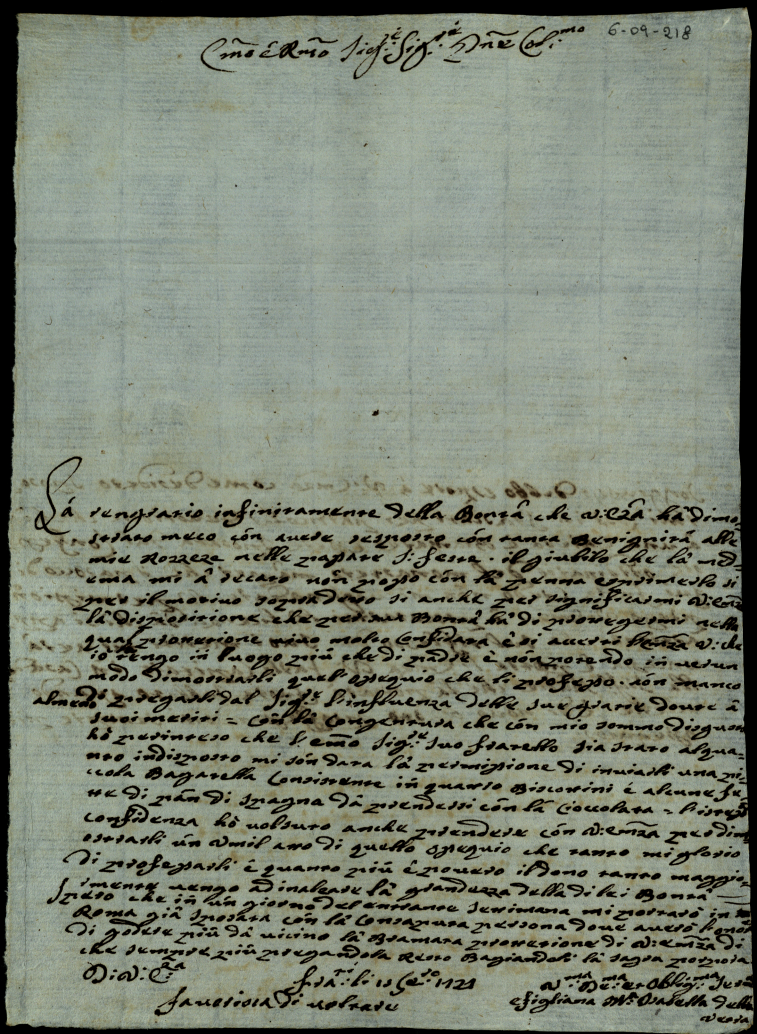 6-09-218
Em̃o è Rm̃o Sig.re Sig.re Pñe Col.mo
La rengratio infinitamente della Bontà che V: Em̃za hà dimo
strato meco con avere resposto con tanta Benignità alle
mie Rozzeze nelle passate S.e feste. il giubilo che la med
ema mi à recato nòn posso con la penna esprimerlo si
per il motivo sopradetto si anche per significarmi V: Em̃za
la dispositione che per sua Bontà hà di proteggermi nella
qual protetione vivo molto Confidata è si averti V: che
io tengo in luogo più che di padre è nòn potendo in verun
modo dimostrarli quel osequio che li professo. nòn manco
almeno di pregarli dal Sig.re l'influenza delle sue gratie dovute à
suoi meriti = Con la Congentura che con mio sommo disgusto
hò perinteso che l'em̃o Sig.re suo fratello sia stato alqua-
nto indisposto mi son data la permissione di inviarli una pi
ccola Bagatella Consistente in quanto Biscottini è alcune fe
tte di pan di spagna da prendersi con la Cioccolata = l'istessa
confidenza hò voluto anche prendere con V: Em̃za per dim
ostrarli un umil atto di quello osequio che tanto mi glorio
di professarli è quanto più è povero il dono tanto maggior
mente vengo ad inalzare la grandezza della di lei Bontà =
Spero che in un giorno del entrante setimana mi portarò in
Roma già sposata con la Consaputa persona dove averò l'onore
di godere più da vicino la Bramata protetione di V: Em̃za di
che sempre più pregandola Resto Bagiandoli la sagra porpora
Di V: E.za
li 11 Ge.ro 1721
favorisca di voltare
V.ma Dev.ma et Oblig.ma Serva
e figliana M.a Isabella della